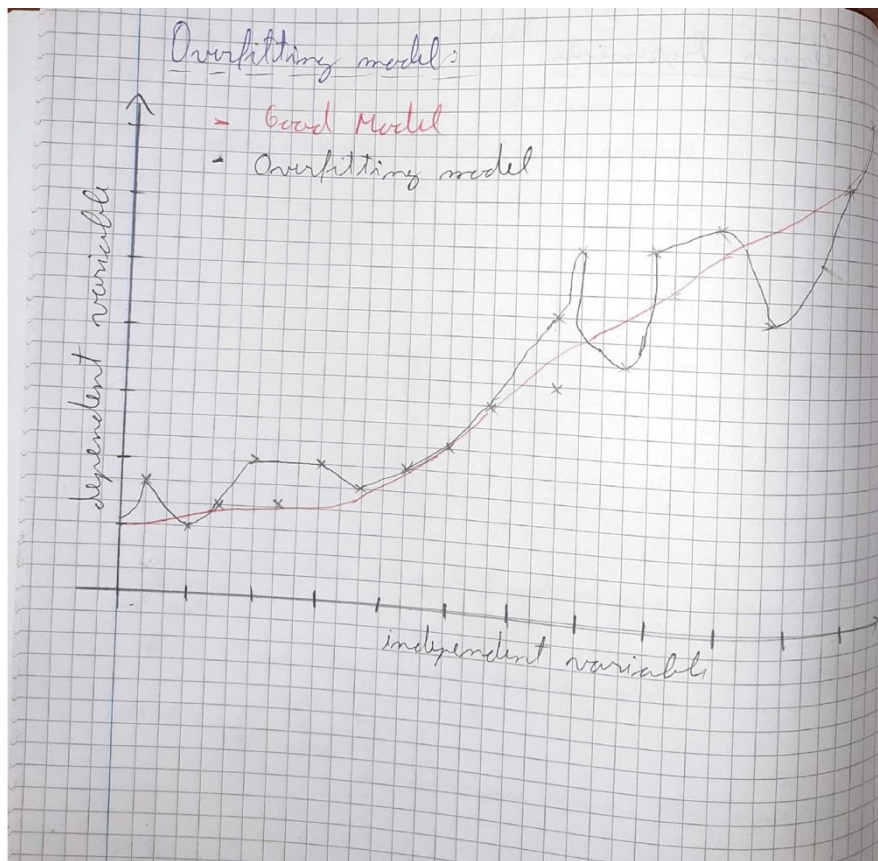 Overfitting model:
- Good Model
- Overfitting model
dependent variable
independent variable